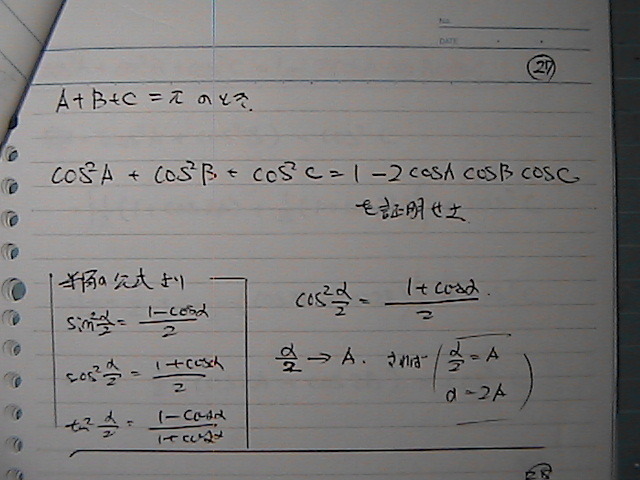 No.
DATE
27
A+B+C=π のとき.
cos²A + cos²B + cos²C = 1 - 2cosA cosB cosC
を証明せよ
半角の公式より
sin²α/2 = (1-cosα)/2
cos²α/2 = (1+cosα)/2
tan²α/2 = (1-cosα)/(1+cosα)
cos²α/2 = (1+cosα)/2.
α/2 → A. (α/2 = A
α = 2A)